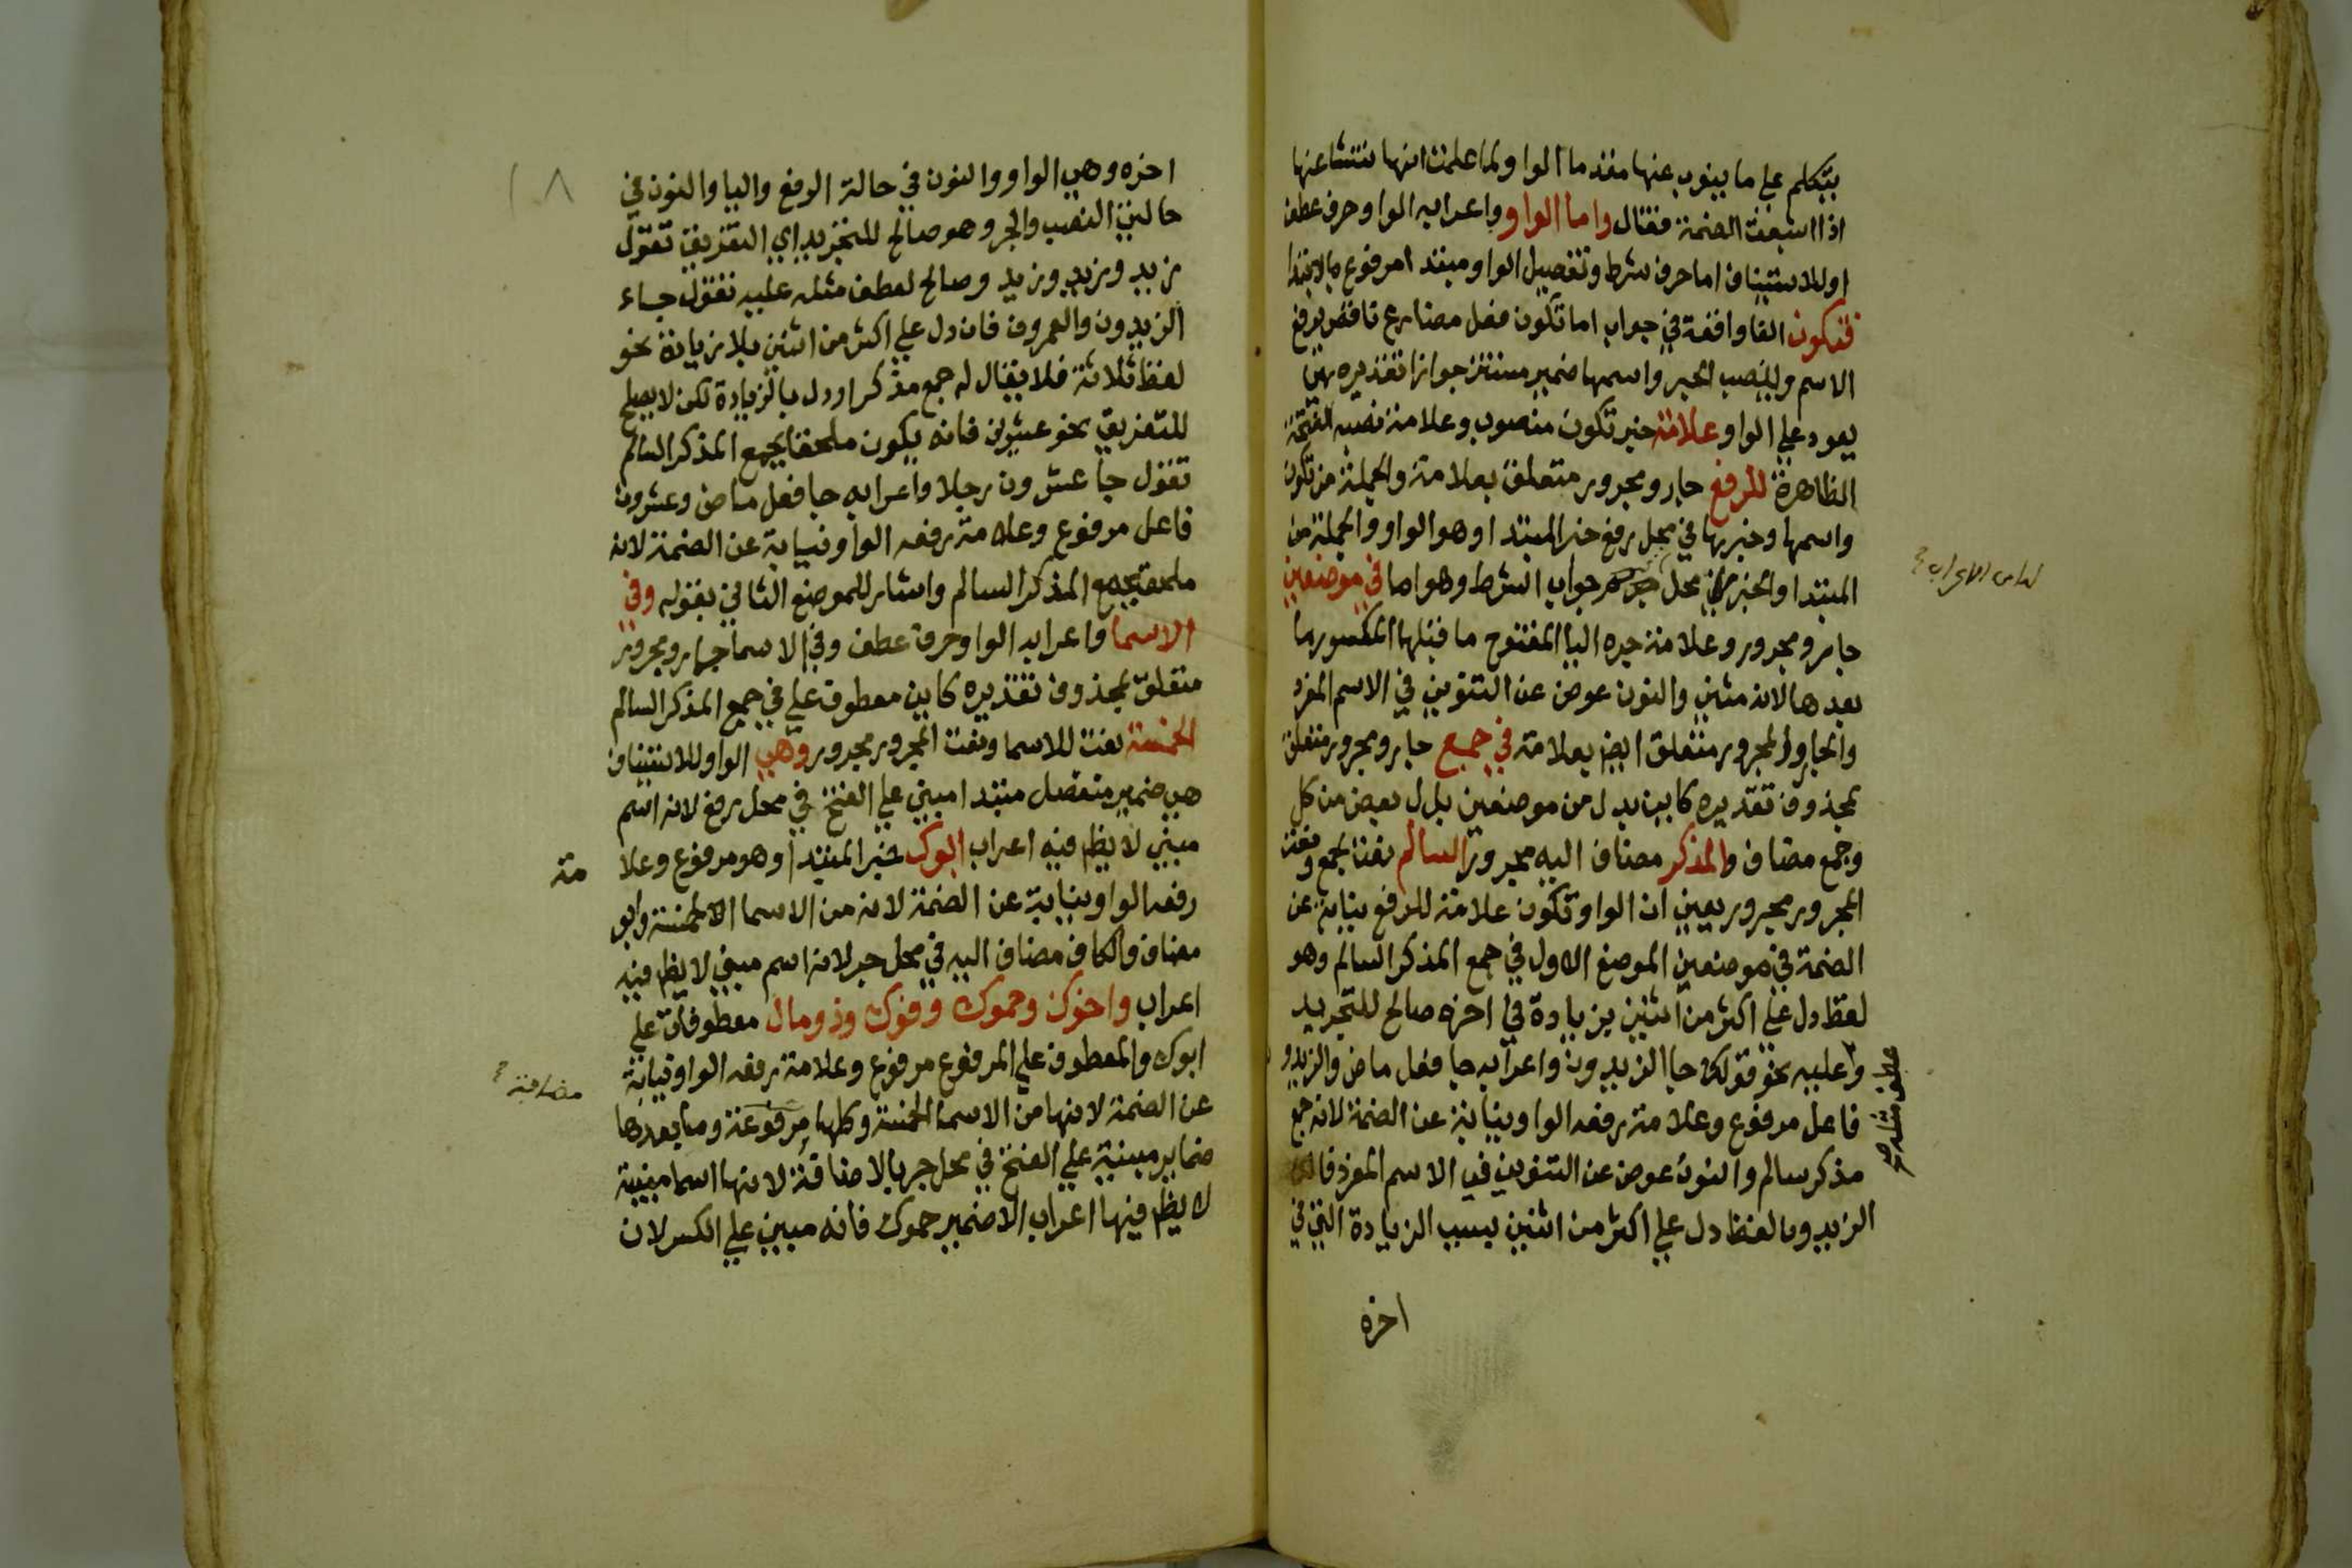 يتكلم على ما ينوب عنها مقدما الواو لما علمت انها تنشا عنها
اذا اشبعت الضمة فقال واما الواو واعرابه الواو حرف عطف
او للاستيناف اما حرف شرط وتفصيل الواو مبتدا مرفوع بالابتدا
فتكون الفا واقعة في جواب اما تكون فعل مضارع ناقص يرفع
الاسم وينصب الخبر واسمها ضمير مستتر جوازا تقديره هي
يعود على الواو علامة خبر تكون منصوب وعلامة نصبه الفتحة
الظاهرة للرفع جار ومجرور متعلق بعلامة والجملة من تكون
واسمها وخبرها في محل رفع خبر المبتدا وهو الواو والجملة من
المبتدا والخبر في محل جواب الشرط وهو اما في موضعين
جار ومجرور وعلامة جره اليا المفتوح ما قبلها المكسور ما
بعدها لانه مثني والنون عوض عن التنوين في الاسم المفرد
والجار والمجرور متعلق ايض بعلامة في جمع جار ومجرور متعلق
بمحذوف تقديره كاين بدل من موضعين بدل بعض من كل
وجمع مضاف والمذكر مضاف اليه مجرور السالم نعت لجمع ونعت
المجرور مجرور يعني ان الواو تكون علامة للرفع نيابة عن
الضمة في موضعين الموضع الاول في جمع المذكر السالم وهو
لفظ دل على اكثر من اثنين بزيادة في اخره صالح للتجريد
وعليه نحو قولك جا الزيدون واعرابه جا فعل ماض والزيدو
فاعل مرفوع وعلامة رفعه الواو نيابة عن الضمة لانه جمع
مذكر سالم والنون عوض عن التنوين في الاسم المفرد فان
الزيدون لفظ دل على اكثر من اثنين بسبب الزيادة التي في
اخره
عطف مثله صح
اخره وهي الواو والنون في حالة الرفع واليا والنون في
حالتي النصب والجر وهو صالح للتجريد اي التفريق تقول
زيد وزيد وزيد وصالح لعطف مثله عليه تقول جاء
الزيدون والعمرون فان دل على اكثر من اثنين بلا زيادة نحو
لفظ ثلاثة فلا يقال له جمع مذكر او دل بالزيادة لكن لا يصلح
للتفريق نحو عشرين فانه يكون ملحقا بجمع المذكر السالم
تقول جا عشرون رجلا واعرابه جا فعل ماض وعشرون
فاعل مرفوع وعلامة رفعه الواو نيابة عن الضمة لانه
ملحق بجمع المذكر السالم واشار للموضع الثاني بقوله وفي
الاسما واعرابه الواو حرف عطف وفي الاسما جار ومجرور
متعلق بمحذوف تقديره كاين معطوف على في جمع المذكر السالم
الخمسة نعت للاسما ونعت المجرور مجرور وهي الواو للاستيناف
هي ضمير منفصل مبتدا مبني على الفتح في محل رفع لانه اسم
مبني لا يظهر فيه اعراب ابوك خبر المبتدا وهو مرفوع وعلا
مة
رفعه الواو نيابة عن الضمة لانه من الاسما الخمسة وابو
مضاف والكاف مضاف اليه في محل جر لانه اسم مبني لا يظهر فيه
اعراب واخوك وحموك وفوك وذو مال معطوفات على
ابوك والمعطوف على المرفوع مرفوع وعلامة رفعه الواو نيابة
عن الضمة لانها من الاسما الخمسة وكلها مرفوعة وما بعدها
ضماير مبنية على الفتح في محل جر بالاضافة لانها اسما مبنية
لا يظهر فيها اعراب الا ضمير حموك فانه مبني على الكسر لان
مضافة
١٨